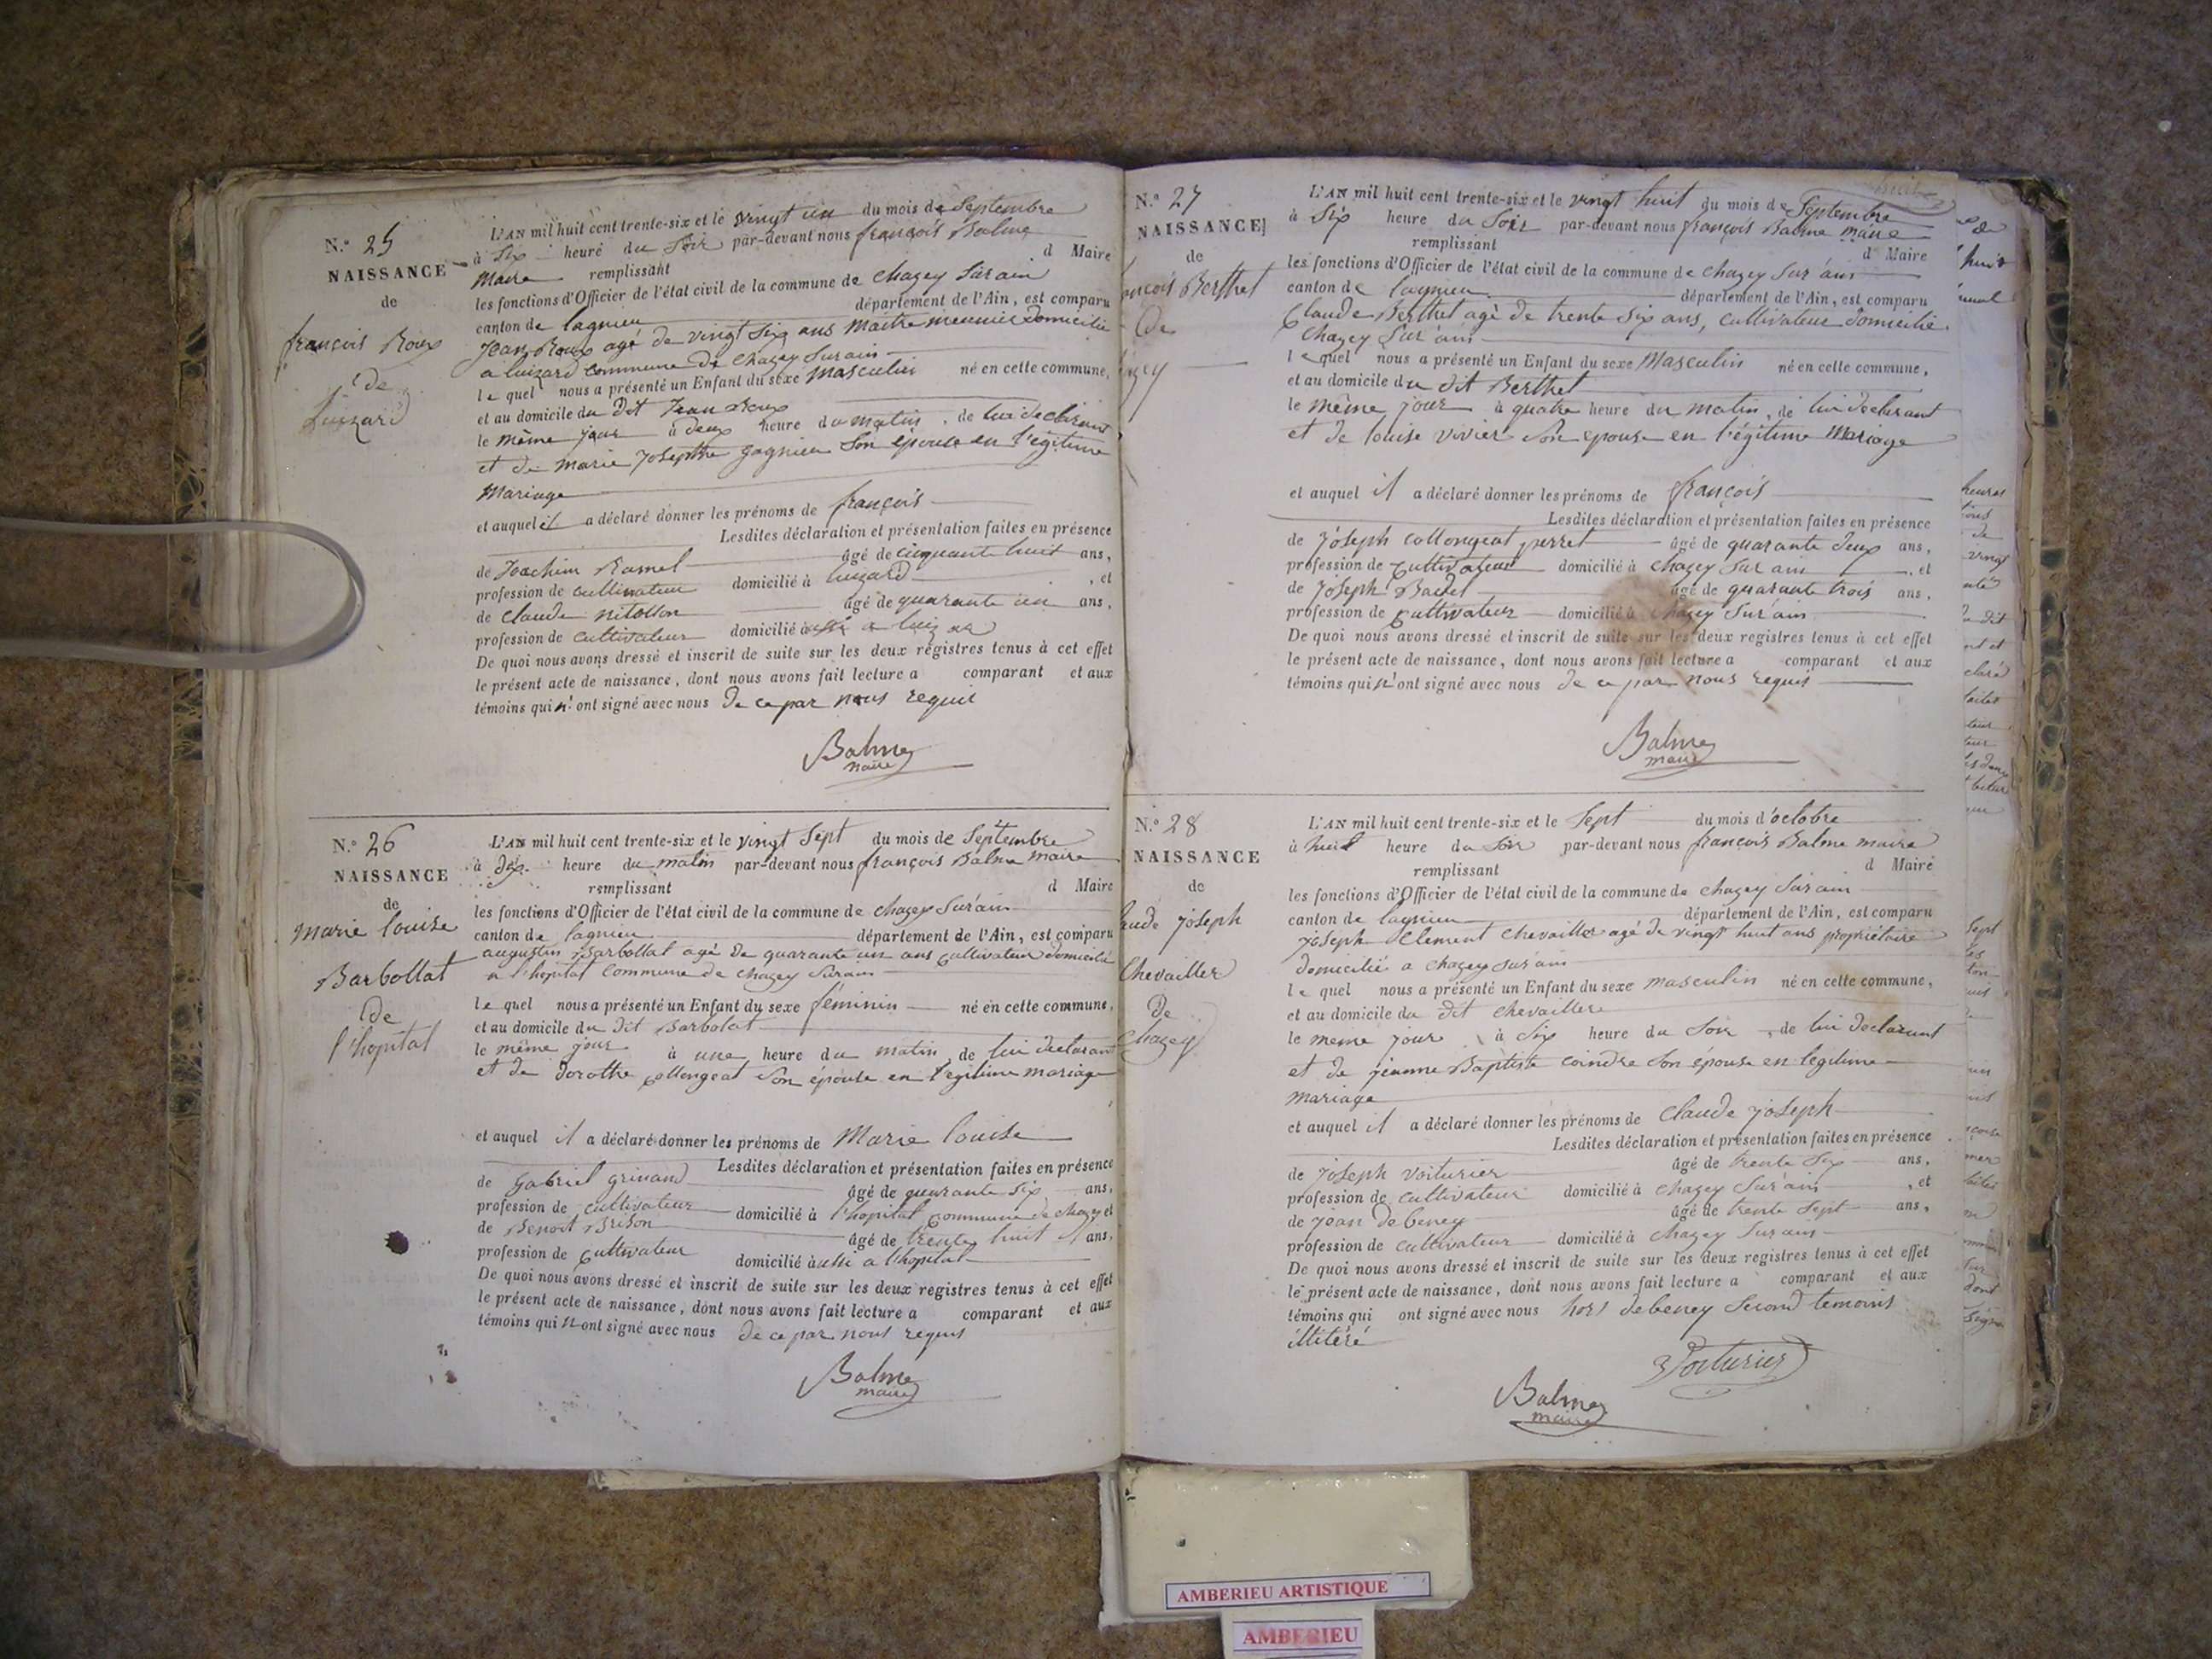 N.° 25
NAISSANCE
de
françois Roux
de
Luizard
L'AN mil huit cent trente-six et le vingt un du mois de Septembre
à Six heure du Soir par-devant nous françois Balme
Maire remplissant d Maire
les fonctions d'Officier de l'état civil de la commune de chazey Sur ain
canton de lagnieu département de l'Ain, est comparu
Jean Roux agé de vingt Six ans Maitre meunier domicilié
a luizard commune de chazey Sur ain
le quel nous a présenté un Enfant du sexe masculin né en cette commune,
et au domicile du dit Jean Roux
le même jour à deux heure du matin, de lui declarant
et de marie Josephte gagnieu Son épouse en l'égitime
Mariage
et auquel il a déclaré donner les prénoms de françois
Lesdites déclaration et présentation faites en présence
de Joachim Ramel âgé de cinquante huit ans,
profession de cultivateur domicilié à luizard, et
de claude nitollon âgé de quarante un ans,
profession de cultivateur domicilié à
De quoi nous avons dressé et inscrit de suite sur les deux registres tenus à cet effet
le présent acte de naissance, dont nous avons fait lecture a comparant et aux
témoins qui n'ont signé avec nous de ce par nous requis
Balme
maire
N.° 26
NAISSANCE
de
Marie louise
Barbollat
de
l'hopital
L'AN mil huit cent trente-six et le vingt Sept du mois de Septembre
à dix heure du matin par-devant nous françois Balme maire
remplissant d Maire
les fonctions d'Officier de l'état civil de la commune de chazey Sur ain
canton de lagnieu département de l'Ain, est comparu
augustin Barbollat agé de quarante un ans cultivateur domicilié
a l'hopital commune de chazey Sur ain
le quel nous a présenté un Enfant du sexe féminin né en cette commune,
et au domicile du dit Barbolat
le même jour à une heure du matin, de lui declarant
et de dorothe collongeat Son épouse en l'egitime mariage
et auquel il a déclaré donner les prénoms de Marie louise
Lesdites déclaration et présentation faites en présence
de Gabriel grinand âgé de quarante six ans,
profession de cultivateur domicilié à l'hopital commune de chazey et
de Benoit Brison âgé de trente huit ans,
profession de cultivateur domicilié à ussi a l'hopital
De quoi nous avons dressé et inscrit de suite sur les deux registres tenus à cet effet
le présent acte de naissance, dont nous avons fait lecture a comparant et aux
témoins qui n'ont signé avec nous de ce par nous requis
Balme
maire
N.° 27
NAISSANCE
de
Berthet
de
L'AN mil huit cent trente-six et le vingt huit du mois de Septembre
à Six heure du Soir par-devant nous françois Balme maire
remplissant d Maire
les fonctions d'Officier de l'état civil de la commune de chazey Sur ain
canton de lagnieu département de l'Ain, est comparu
Claude Berthet agé de trente Six ans, cultivateur domicilié
Chazey Sur ain
le quel nous a présenté un Enfant du sexe Masculin né en cette commune,
et au domicile du dit Berthet
le même jour à quatre heure du matin, de lui declarant
et de louise vivier Son epouse en l'égitime Mariage
et auquel il a déclaré donner les prénoms de françois
Lesdites déclaration et présentation faites en présence
de Joseph collongeat perret âgé de quarante deux ans,
profession de cultivateur domicilié à chazey Sur ain, et
de Joseph Bachet âgé de quarante trois ans,
profession de cultivateur domicilié à chazey Sur ain
De quoi nous avons dressé et inscrit de suite sur les deux registres tenus à cet effet
le présent acte de naissance, dont nous avons fait lecture a comparant et aux
témoins qui n'ont signé avec nous de ce par nous requis
Balme
maire
N.° 28
NAISSANCE
de
joseph
Chevailler
de
Chazey
L'AN mil huit cent trente-six et le Sept du mois d'octobre
à huit heure du Soir par-devant nous françois Balme maire
remplissant d Maire
les fonctions d'Officier de l'état civil de la commune de chazey Sur ain
canton de lagnieu département de l'Ain, est comparu
joseph Clement chevailler agé de vingt huit ans propriétaire
domicilié a chazey Sur ain
le quel nous a présenté un Enfant du sexe masculin né en cette commune,
et au domicile du dit chevailler
le meme jour à Six heure du Soir, de lui declarant
et de jeanne Baptiste coindre Son épouse en legitime
mariage
et auquel il a déclaré donner les prénoms de Claude joseph
Lesdites déclaration et présentation faites en présence
de joseph Voiturier âgé de trente Six ans,
profession de cultivateur domicilié à chazey Sur ain, et
de jean debeney âgé de trente Sept ans,
profession de cultivateur domicilié à chazey Sur ain
De quoi nous avons dressé et inscrit de suite sur les deux registres tenus à cet effet
le présent acte de naissance, dont nous avons fait lecture a comparant et aux
témoins qui ont signé avec nous hors debeney Second temoins
illitéré
Voiturier
Balme
maire
AMBERIEU ARTISTIQUE
AMBERIEU